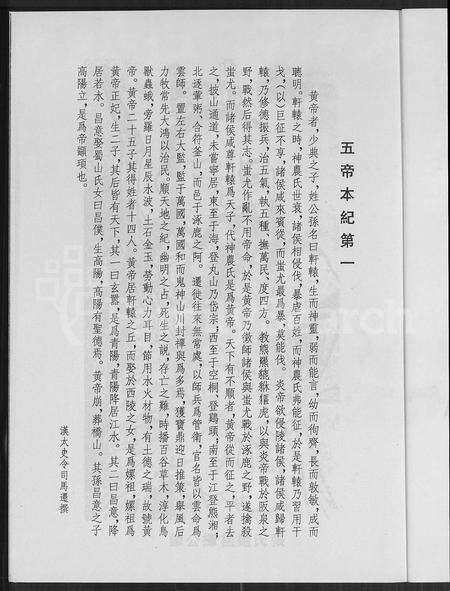 五帝本紀第一
黃帝者，少典之子，姓公孫名曰軒轅，生而神靈，弱而能言，幼而徇齊，長而敦敏，成而
聰明。軒轅之時，神農氏世衰，諸侯相侵伐，暴虐百姓，而神農氏弗能征。於是軒轅乃習用干
戈，（以）巨征不享，諸侯咸來賓從，而蚩尤最爲暴，莫能伐。炎帝欲侵陵諸侯，諸侯咸歸軒
轅，乃修德振兵，治五氣，執五種，撫萬民，度四方。教熊羆貔貅貙虎，以與炎帝戰於阪泉之
野，戰然后得其志。蚩尤作亂不用帝命，於是黃帝乃徵師諸侯與蚩尤戰於涿鹿之野，遂擒殺
蚩尤。而諸侯咸尊軒轅爲天子，代神農氏是爲黃帝。天下有不順者，黃帝從而征之，平者去
之，披山通道，未嘗寧居，東至于海，登丸山乃岱宗，西至于空桐、登鷄頭，南至于江登熊湘，
北逐葷粥、合符釜山，而邑于涿鹿之阿。遷徙往來無常處，以師兵爲管衛，官名皆以雲命爲
雲師。置左右大監，監于萬國，萬國和而鬼神山川封禪與爲多焉，獲寶鼎迎日推策，舉風后
力牧常先大鴻以治民。順天地之紀，幽明之占，死生之說，存亡之難，時播百谷草木，淳化鳥
獸蟲蛾，旁羅日月星辰水波，土石金玉，勞動心力耳目，節用水火材物，有土德之瑞，故號黃
帝。黃帝二十五子其得姓者十四人。黃帝居軒轅之丘，而娶於西陵之女，是爲嫘祖，嫘祖爲
黃帝正妃，生二子，其后皆有天下，其一曰玄囂，是爲青陽，青陽降居江水。其二曰昌意，降
居若水。昌意娶蜀山氏女曰昌僕，生高陽，高陽有聖德焉。黃帝崩，葬橋山。其孫昌意之子
高陽立，是爲帝顓頊也。
漢太史令司馬遷撰